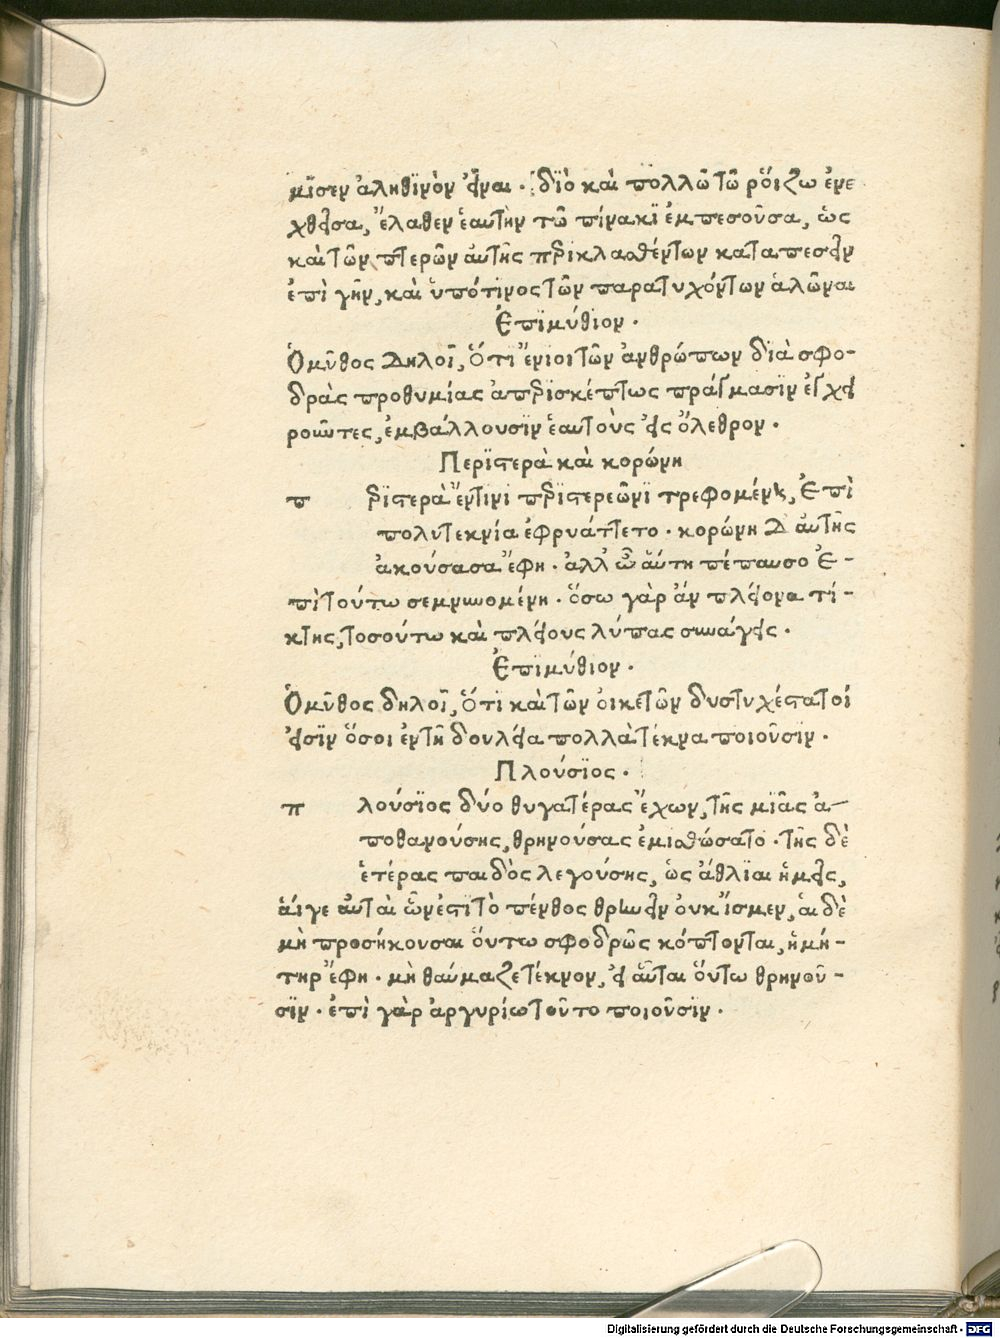 μΐσεν ἀληθϊνὸν εἶναι · δϊὸ καὶ πολλῶ τῶ ῥόιζω ἐνε
χθεῖσα, ἔλαθεν ἑαυτὴν τῶ πίνακϊ ἐμπεσοῦσα, ὡς
καὶ τῶν πτερῶν ἀυτῆς περικλασθέντων καταπεσεῖν
ἐπὶ γῆν, καὶ ὑπό τινος τῶν παρατυχόντων ἁλῶναι
Ἐπϊμύθιον ·
Ὁ μῦθος δηλοῖ, ὅτι ἔνιοι τῶν ἀνθρώπων δϊὰ σφο-
δρὰς προθυμίας ἀπερισκέπτως πράγμασϊν ἐγχει
ροῦντες, ἐμβάλλουσϊν ἑαυτοὺς εἰς ὄλεθρον ·
Περϊστερὰ καὶ κορώνη
π ερϊστερὰ ἔν τινι περιστερεῶνϊ τρεφομένη, ἐπὶ
πολυτεκνία ἐφρυάττετο · κορώνη δ' ἀυτῆς
ἀκούσασα ἔφη · ἀλλ' ὦ ἄυτη πέπαυσο ἐ-
πὶ τούτω σεμνυνομένη · ὅσω γὰρ ἂν πλείονα τί-
κτης, τοσούτω καὶ πλείους λύπας συνάγεις ·
Ἐπϊμύθιον ·
Ὁ μῦθος δηλοῖ, ὅτι καὶ τῶν ὀικετῶν δυστυχέστατοί
εἰσϊν ὅσοι ἐν τῆ δουλεία πολλὰ τέκνα ποιοῦσϊν ·
Πλούσϊος ·
π λούσϊος δύο θυγατέρας ἔχων, τῆς μϊᾶς ἀ-
ποθανούσης, θρηνούσας ἐμισθώσατο · τῆς δὲ
ἑτέρας παιδὸς λεγούσης, ὡς ἀθλϊαι ἡμεῖς,
ἅιγε ἀυταὶ ὧν ἐστὶ τὸ πένθος θρηνεῖν ὀυκ ἴσμεν, ἁι δὲ
μὴ προσήκουσαι ὅυτω σφοδρῶς κόπτονται, ἡ μή-
τηρ ἔφη · μὴ θαύμαζε τέκνον, εἰ ἁῦται ὅυτω θρηνοῦ-
σϊν · ἐπὶ γὰρ ἀργυρίω τοῦτο ποιοῦσϊν ·
Digitalisierung gefördert durch die Deutsche Forschungsgemeinschaft - DFG